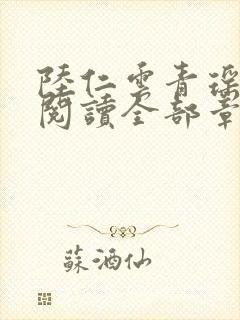 陸仁雲青瑤
閱讀全部章
蘇酒仙